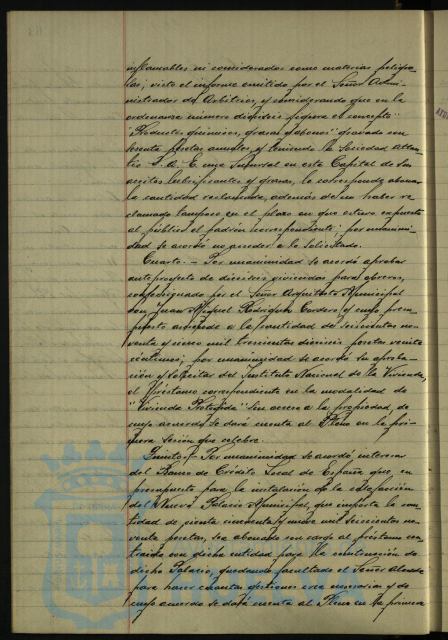 inflamables ni considerados como materias peligro-
sas; visto el informe emitido por el Señor Admi-
nistrador de Arbitrios, y considerando que en la
ordenanza número dieciseis figura en concepto
"Productos químicos, grasas y abonos" gravado con
pesetas anuales, y teniendo la Sociedad Atlan-
tic S. A. E. una Sucursal en esta Capital de sus
aceites lubrificantes y grasas, le corresponde abonar
la cantidad reclamada, además de no haber re-
clamado tampoco en el plazo en que estuvo expuesto
al público el padrón correspondiente; por unanimi-
dad se acordó no acceder a lo solicitado.
Cuarto.- Por unanimidad se acordó aprobar
anteproyecto de dieciseis viviendas para obreros,
confeccionado por el Señor Arquitecto Municipal
don Juan Miguel Rodríguez Cordero y cuyo presu-
puesto asciende a la cantidad de seiscientas no-
venta y cinco mil trescientas dieciseis pesetas veinte
céntimos; por unanimidad se acordó su aproba-
ción y solicitar del Instituto Nacional de la Vivienda,
el préstamo correspondiente en la modalidad de
"Vivienda Protegida" sin acceso a la propiedad, de
cuyo acuerdo se dará cuenta al Pleno en la pri-
mera sesión que celebre.
Quinto.- Por unanimidad se acordó interesar
del Banco de Crédito Local de España que, en
presupuesto para la instalación de la calefacción
del Nuevo Palacio Municipal, que importa la can-
tidad de ciento cincuenta y nueve mil seiscientas no-
venta pesetas, sea abonado con cargo al préstamo con-
traido con dicha entidad para la construcción de
dicho Palacio, quedando facultado el Señor Alcalde
para hacer cuantas gestiones crea necesarias y de
cuyo acuerdo se dará cuenta al Pleno en la primera